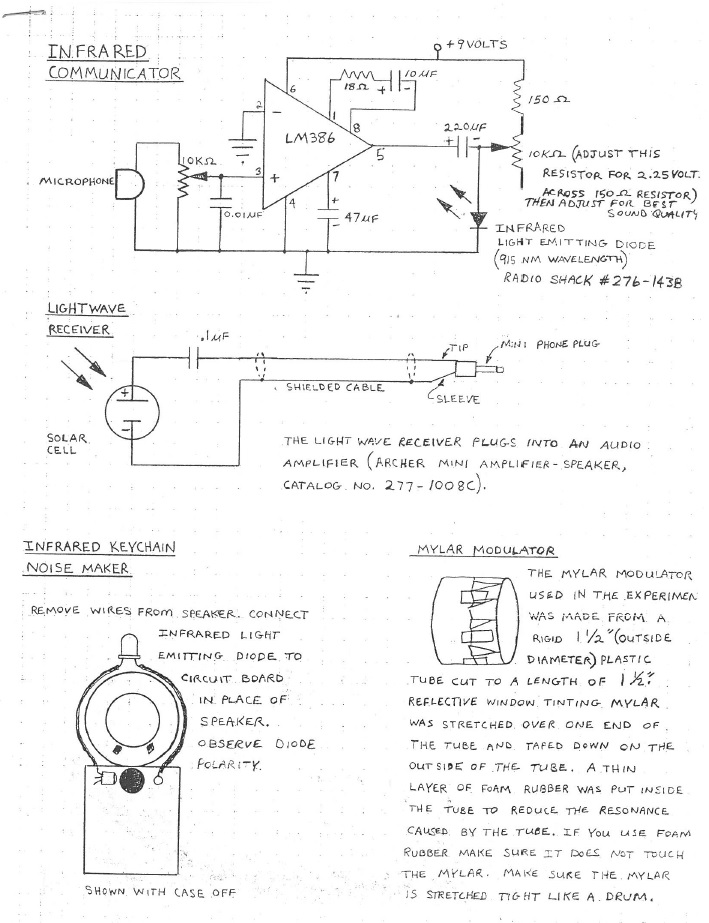 INFRARED
COMMUNICATOR
+9VOLTS
6
18Ω
+
10µF
-
1
8
2
-
LM386
5
220µF
+ -
150Ω
10KΩ (ADJUST THIS
RESISTOR FOR 2.25 VOLT.
ACROSS 150Ω RESISTOR)
THEN ADJUST FOR BEST
SOUND QUALITY
MICROPHONE
10KΩ
3
+
0.01µF
4
7
+
-
47µF
INFRARED
LIGHT EMITTING DIODE
(915 NM WAVELENGTH)
RADIO SHACK #276-143B
LIGHTWAVE
RECEIVER
.1µF
TIP
MINI PHONE PLUG
SHIELDED CABLE
SLEEVE
+
-
SOLAR
CELL
THE LIGHT WAVE RECEIVER PLUGS INTO AN AUDIO
AMPLIFIER (ARCHER MINI AMPLIFIER-SPEAKER,
CATALOG NO. 277-1008C).
INFRARED KEYCHAIN
NOISE MAKER
REMOVE WIRES FROM SPEAKER. CONNECT
INFRARED LIGHT
EMITTING DIODE TO
CIRCUIT BOARD
IN PLACE OF
SPEAKER.
OBSERVE DIODE
POLARITY.
SHOWN WITH CASE OFF
MYLAR MODULATOR
THE MYLAR MODULATOR
USED IN THE EXPERIMEN
WAS MADE FROM A
RIGID 1 1/2" (OUTSIDE
DIAMETER) PLASTIC
TUBE CUT TO A LENGTH OF 1 1/2".
REFLECTIVE WINDOW TINTING MYLAR
WAS STRETCHED OVER ONE END OF
THE TUBE AND TAPED DOWN ON THE
OUTSIDE OF THE TUBE. A THIN
LAYER OF FOAM RUBBER WAS PUT INSIDE
THE TUBE TO REDUCE THE RESONANCE
CAUSED BY THE TUBE. IF YOU USE FOAM
RUBBER MAKE SURE IT DOES NOT TOUCH
THE MYLAR. MAKE SURE THE MYLAR
IS STRETCHED TIGHT LIKE A DRUM.